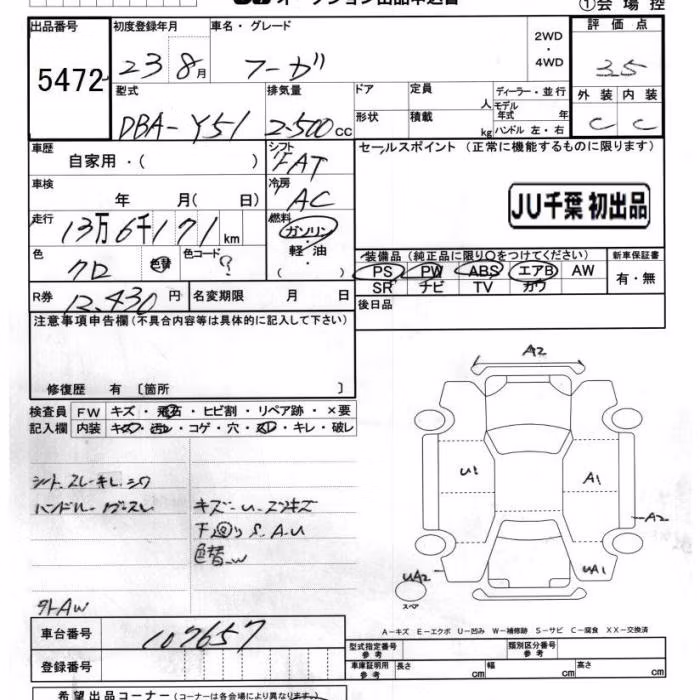 ①会場控
出品番号 初度登録年月 車名・グレード 2WD・4WD 評価点
5472 23 8月 フーガ 3.5
型式 排気量 ドア 定員 人 ディーラー・並行 外装 内装
DBA-Y51 2.500cc 形状 積載 kg モデル年式 年 ハンドル 左・右 C C
車歴 自家用・( ) シフト FAT セールスポイント (正常に機能するものに限ります)
車検 年 月( 日) 冷房 AC
JU千葉 初出品
走行 13万6千171km 燃料 ガソリン・軽油・( )
色 クロ 色替 色コード ?
装備品 (純正品に限り○をつけてください) 新車保証書
PS PW ABS エアB AW 有・無
SR ナビ TV カワ
R券 12,430円 名変期限 月 日 後日品
注意事項申告欄 (不具合内容等は具体的に記入して下さい)
修復歴 有 〔箇所 〕
検査員 FW キズ・飛石・ヒビ割・リペア跡・×要
記入欄 内装 キズ・汚レ・コゲ・穴・スレ・キレ・破レ
シート スレ・キレ・シワ
ハンドル
キズ・U・
下回り S.A.U
色替 W
外AW
A2
U1
A1
A2
UA2
UA1
スペア
A-キズ E-エクボ U-凹み W-補修跡 S-サビ C-腐食 XX-交換済
車台番号 107657
登録番号
型式指定番号 参考 類別区分番号 参考
車庫証明用 参考 長さ cm 幅 cm 高さ cm
希望出品コーナー (コーナーは各会場により異なります)